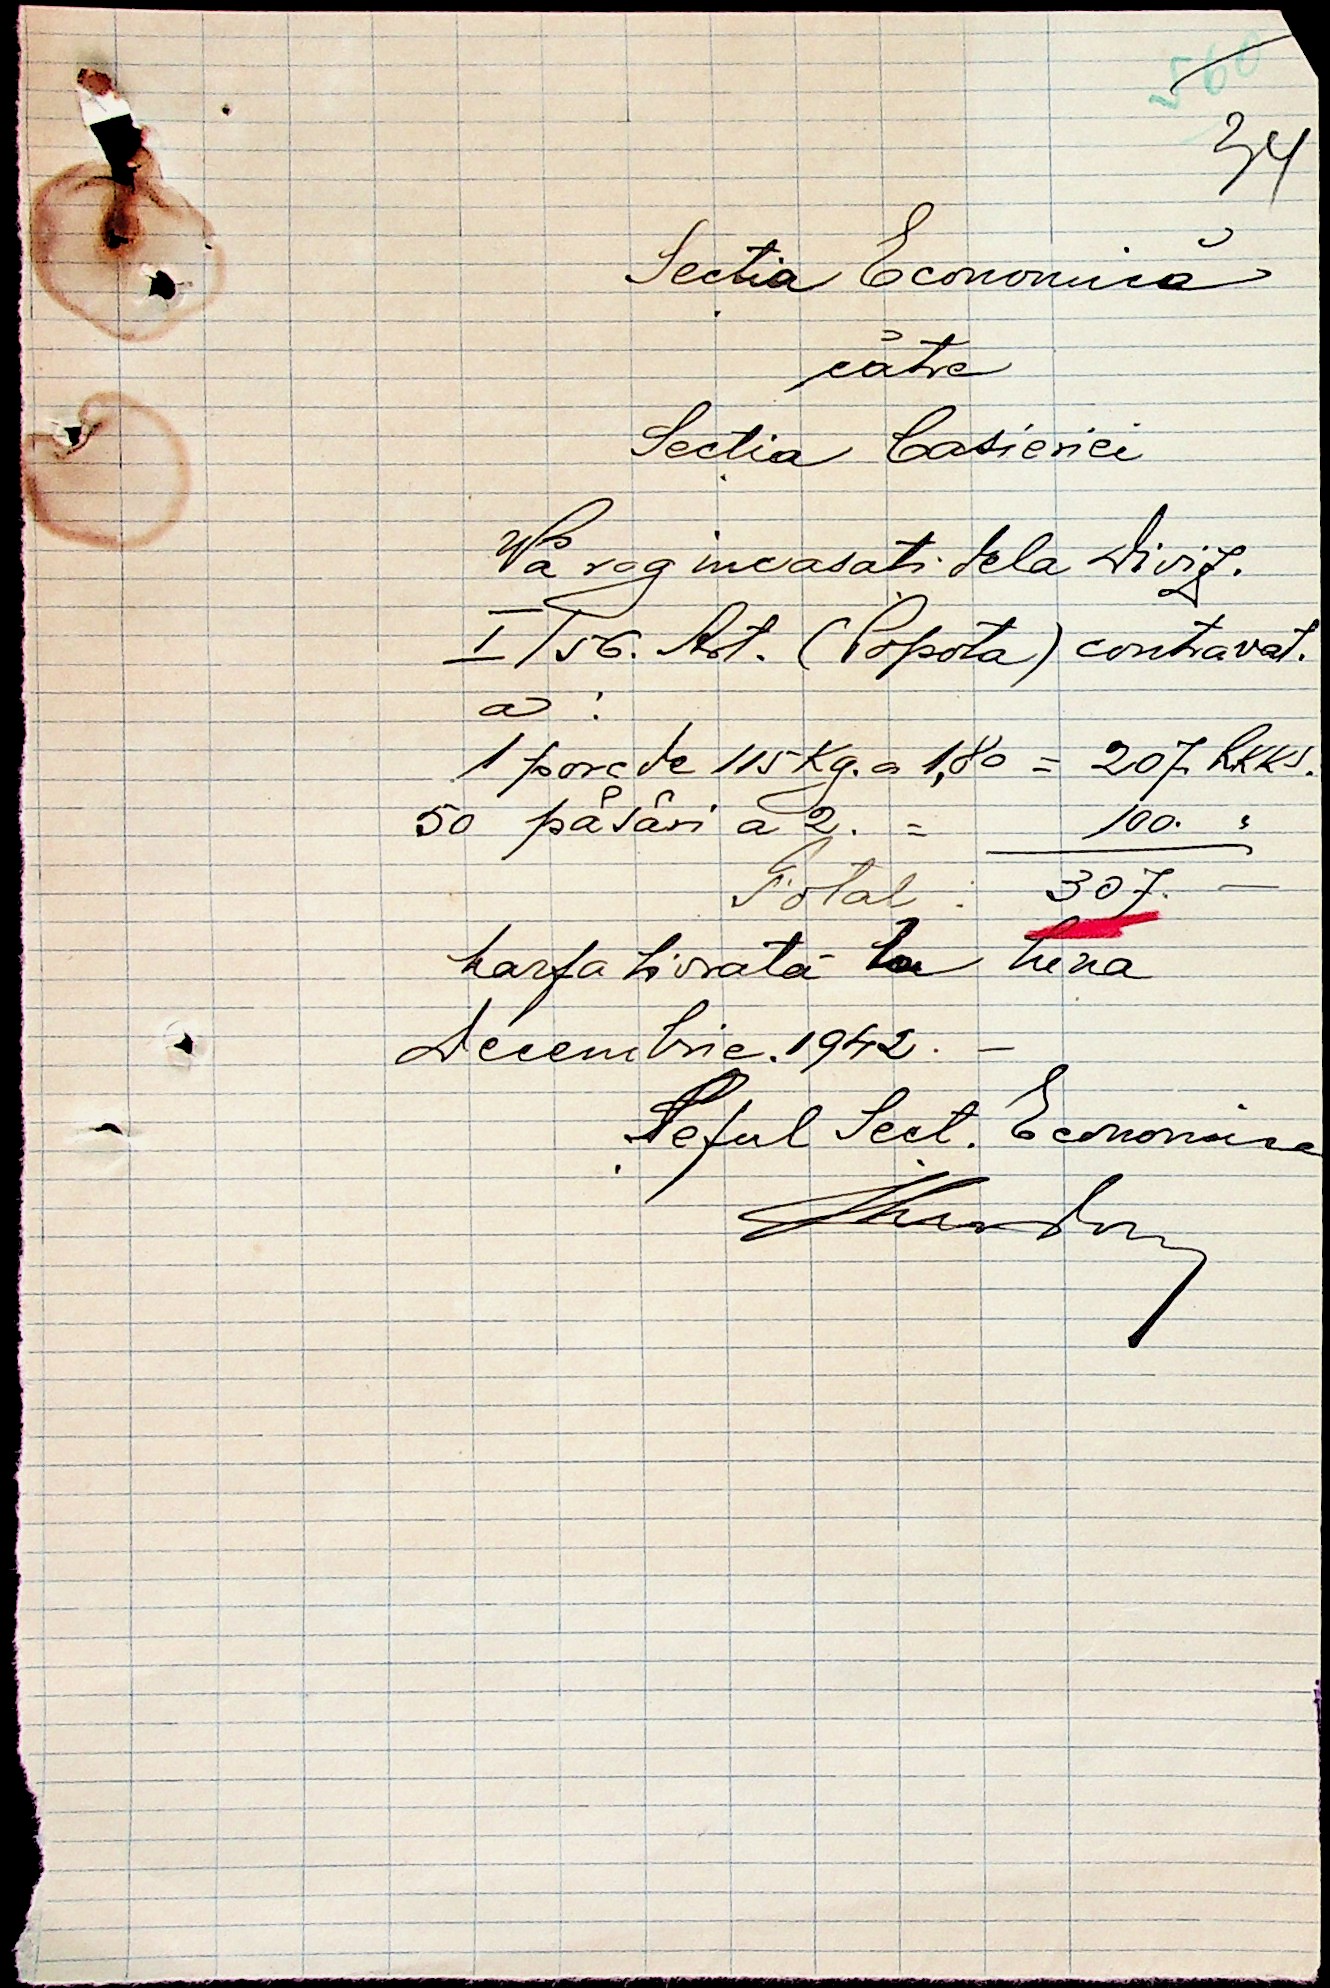 560
34
Secția Economică
către
Secția Casieriei
Vă rog încasați dela Diviz.
I/56. Art. (Popota) contraval.
a :
1 porc de 115 Kg. a 1,80 = 207. RKKS.
50 păsări a 2. = 100. "
Total : 307. —
Marfa livrată în luna
Decembrie. 1942. —
Șeful Secț. Economice